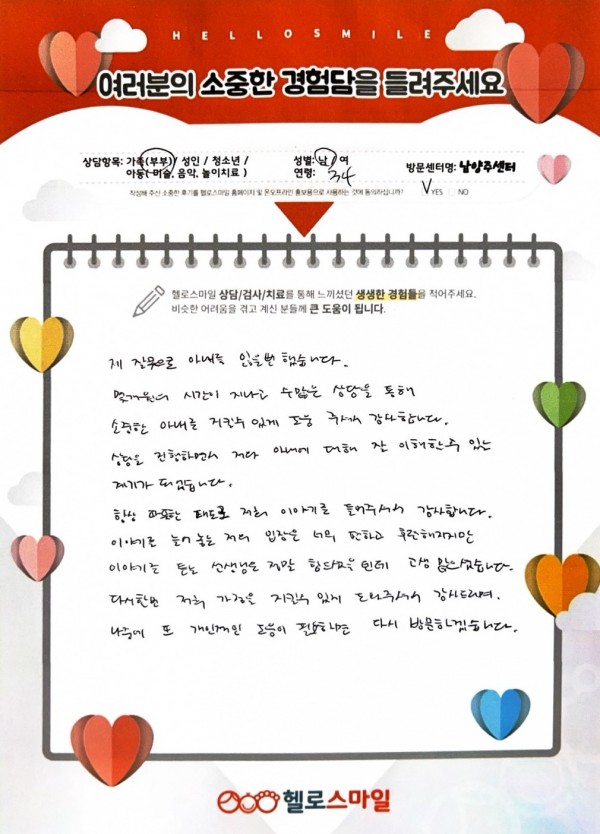 HELLOSMILE
여러분의 소중한 경험담을 들려주세요
상담항목: 가족(부부) / 성인 / 청소년 /
아동( 미술, 음악, 놀이치료 )
성별: 남 / 여
연령: 34
방문센터명: 남양주센터
작성해 주신 소중한 후기를 헬로스마일 홈페이지 및 온오프라인 홍보용으로 사용하는 것에 동의하십니까? V YES NO
헬로스마일 상담/검사/치료를 통해 느끼셨던 생생한 경험들을 적어주세요.
비슷한 어려움을 겪고 계신 분들께 큰 도움이 됩니다.
제 잘못으로 아내를 잃을뻔 했습니다.
시간이 지나고 수많은 상담을 통해
소중한 아내를 지킬수 있게 도움 주셔서 감사합니다.
상담을 진행하면서 저와 아내에 대해 잘 이해할수 있는
계기가 되었습니다.
항상 따뜻한 태도로 저희 이야기를 들어주셔서 감사합니다.
이야기를 늘어 놓는 저의 입장은 너무 편하고 후련해지지만
이야기를 듣는 선생님은 정말 힘드셨을 텐데 고생 많으셨습니다.
다시한번 저희 가정을 지킬수 있게 도와주셔서 감사드리며.
나중에 또 개인적인 도움이 필요하면 다시 방문하겠습니다.
헬로스마일